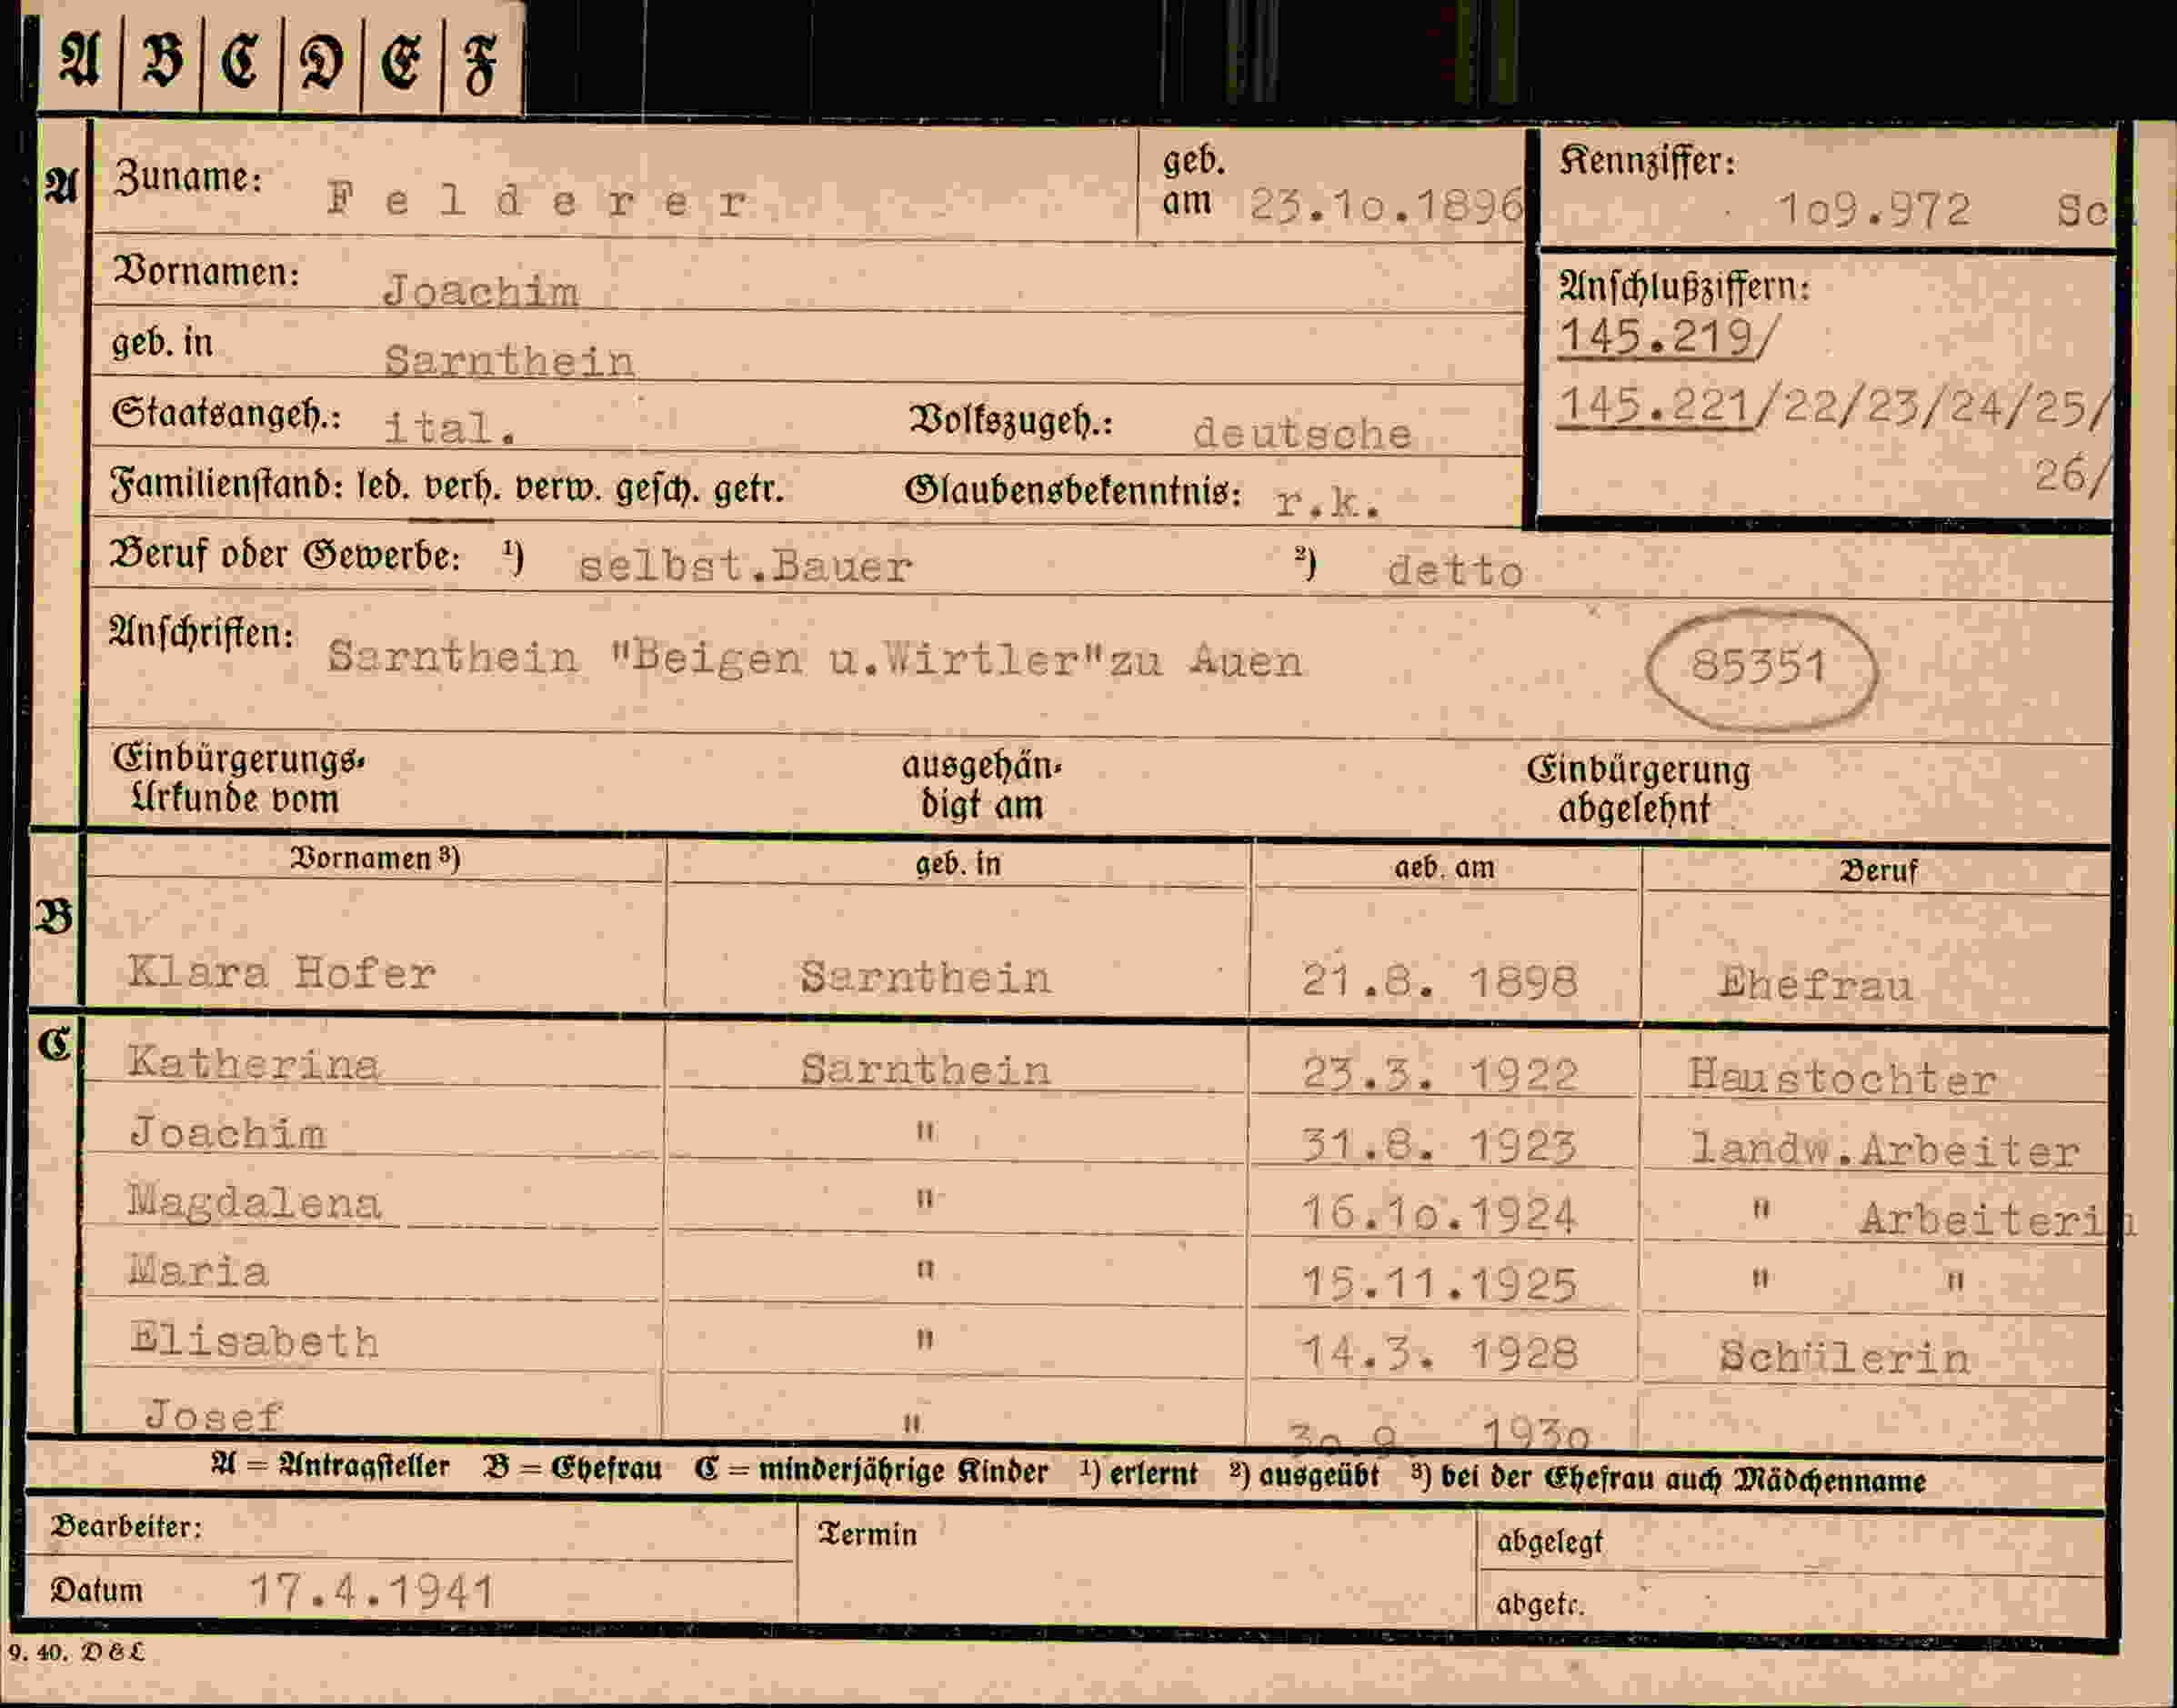 A B C D E F
A Zuname: Felderer geb. am 23.10.1896 Kennziffer: 109.972 Sc
Vornamen: Joachim
geb. in Sarnthein
Anschlußziffern:
145.219/
145.221/22/23/24/25/
26/
Staatsangeh.: ital. Volkszugeh.: deutsche
Familienstand: led. verh. verw. gesch. getr. Glaubensbekenntnis: r.k.
Beruf oder Gewerbe: ¹) selbst.Bauer ²) detto
Anschriften: Sarnthein "Beigen u.Wirtler"zu Auen 85351
Einbürgerungs- ausgehän- Einbürgerung
Urkunde vom digt am abgelehnt
Vornamen ³) geb. in geb. am Beruf
B
Klara Hofer Sarnthein 21.8. 1898 Ehefrau
C Katherina Sarnthein 23.3. 1922 Haustochter
Joachim " 31.8. 1923 landw.Arbeiter
Magdalena " 16.10.1924 " Arbeiterin
Maria " 15.11.1925 " "
Elisabeth " 14.3. 1928 Schülerin
Josef " 30 9 1930
A = Antragsteller B = Ehefrau C = minderjährige Kinder ¹) erlernt ²) ausgeübt ³) bei der Ehefrau auch Mädchenname
Bearbeiter: Termin abgelegt
Datum 17.4.1941 abgetr.
9. 40. D & L